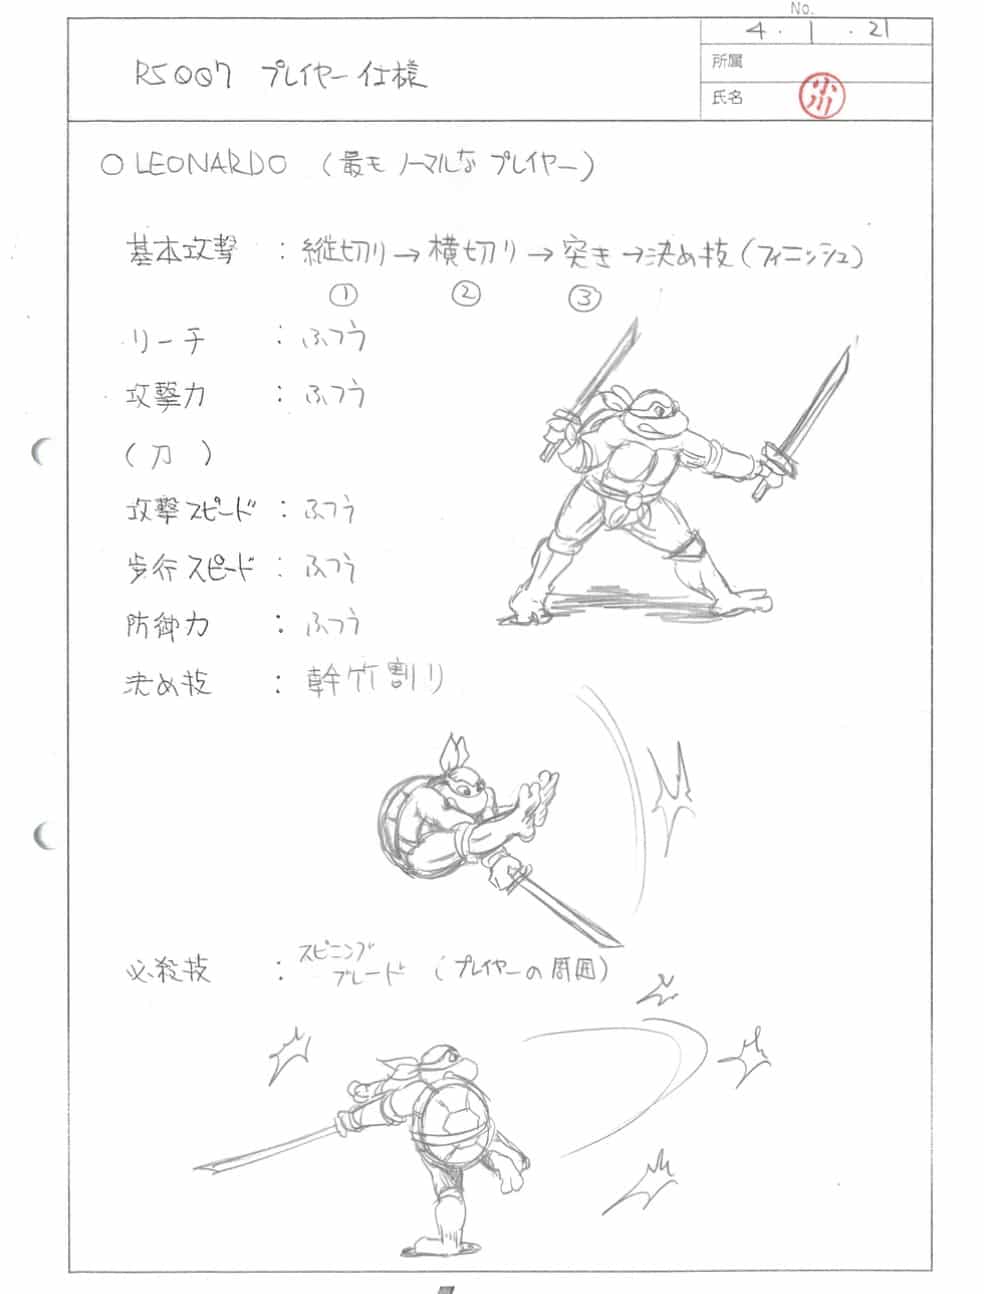 No.
4 . 1 . 21
RS007 プレイヤー仕様
所属
氏名
小川
○ LEONARDO (最もノーマルな プレイヤー)
基本攻撃 : 縦切り→横切り→突き→決め技(フィニッシュ)
① ② ③
リーチ : ふつう
攻撃力 : ふつう
(刀)
攻撃スピード : ふつう
歩行スピード : ふつう
防御力 : ふつう
決め技 : 幹竹割り
必殺技 : スピニングブレード (プレイヤーの周囲)